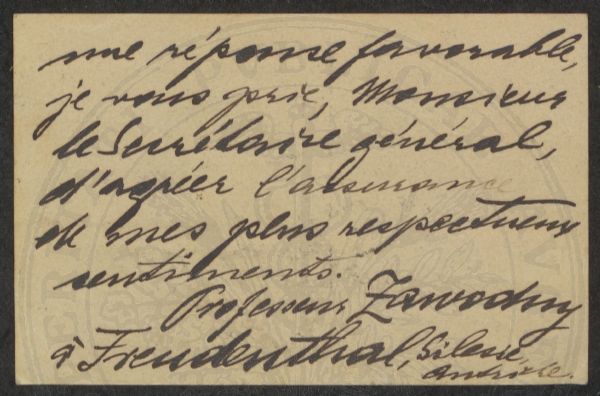 une réponse favorable,
je vous prie, Monsieur
le Secrétaire général,
d'agréer l'assurance
de mes plus respectueux
sentiments.
Professeur Zawodny
à Freudenthal, Silesie,
Autriche.